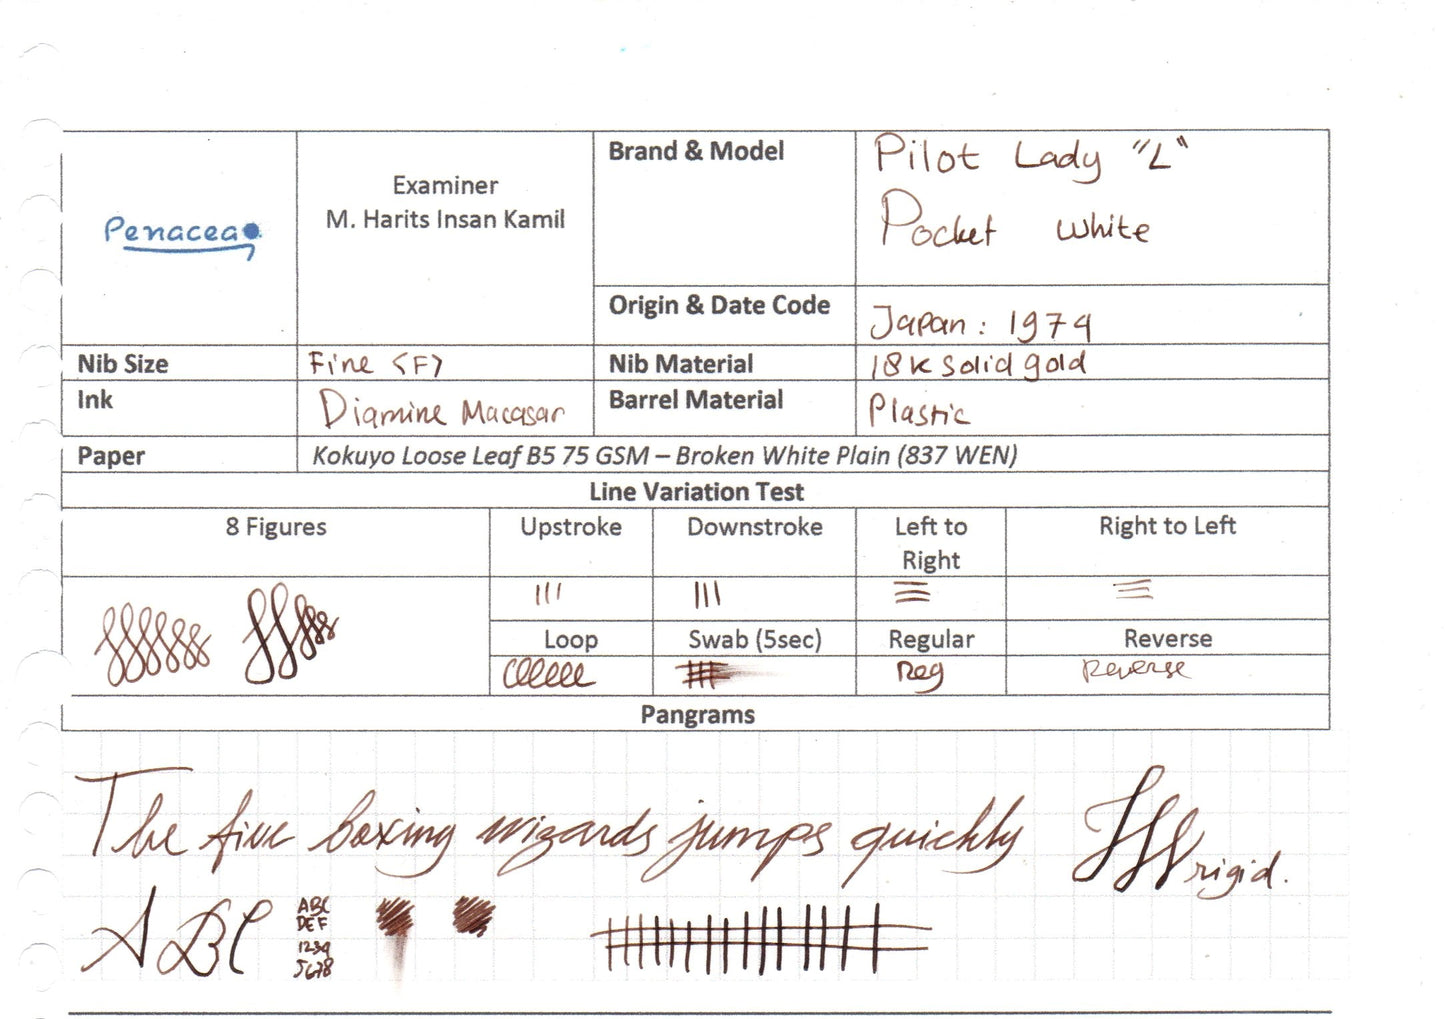 Penacea
Examiner
M. Harits Insan Kamil
Brand & Model
Pilot Lady "L"
Pocket White
Origin & Date Code
Japan : 1974
Nib Size
Fine <F>
Nib Material
18K solid gold
Ink
Diamine Macassar
Barrel Material
Plastic
Paper
Kokuyo Loose Leaf B5 75 GSM – Broken White Plain (837 WEN)
Line Variation Test
8 Figures
Upstroke
Downstroke
Left to
Right
Right to Left
Loop
Swab (5sec)
Regular
Reverse
Reg
Reverse
Pangrams
The five boxing wizards jumps quickly
rigid.
ABC
ABC
DEF
1234
5678